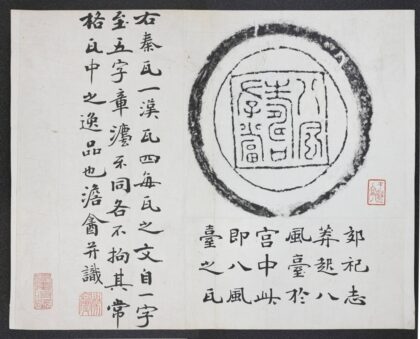 八風
壽
存當
郊祀志
莽起八
風臺於
宮中此
即八風
臺之瓦
右秦瓦一漢瓦四每瓦之文自一字
至五字章灋不同各不拘其常
格瓦中之逸品也澹盦并識